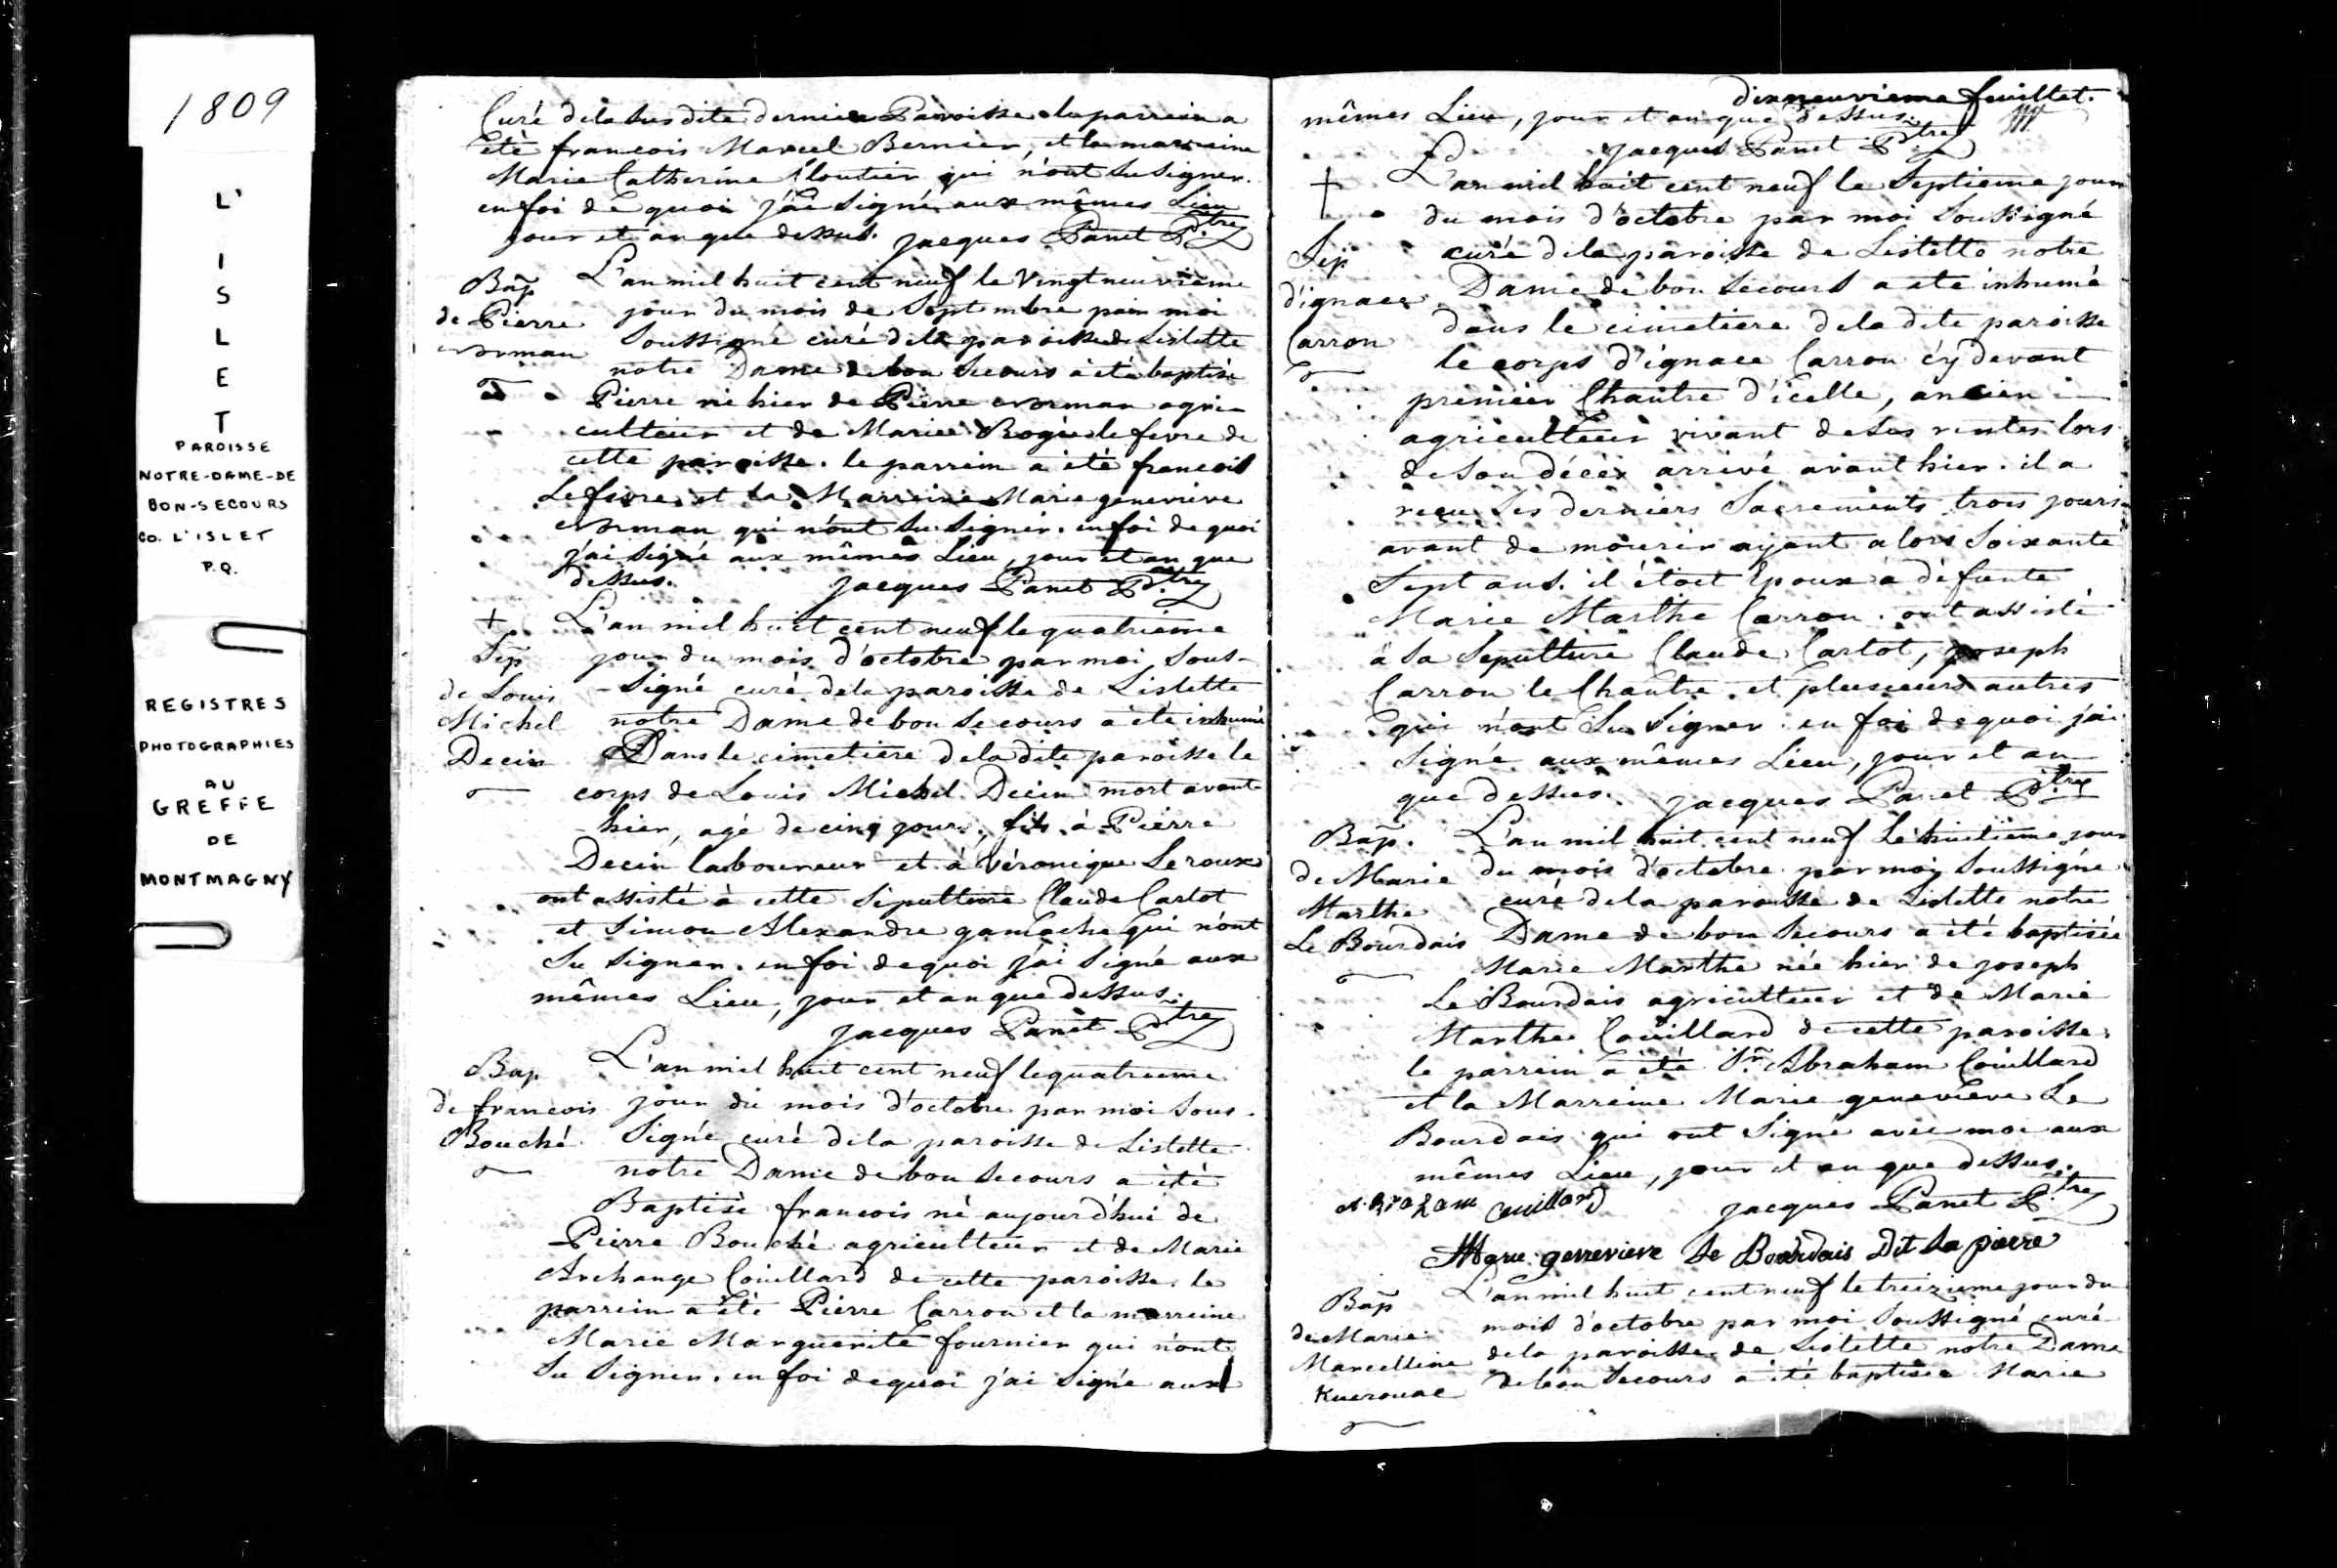 1809
L'
I
S
L
E
T
PAROISSE
NOTRE-DAME-DE
BON-SECOURS
CO. L'ISLET
P.Q.
REGISTRES
PHOTOGRAPHIES
AU
GREFFE
DE
MONTMAGNY
Curé dela Sus dite derniere Paroisse le parrein a
été francois Marcel Bernier, et la marreine
Marie Catherine Cloutier qui n'ont Su Signer.
en foi de quoi j'ai Signé aux mêmes Lieu
jour et an que dessus. jacques Panet Ptre
Bap
de Pierre
Norman
L'an mil huit cent neuf le Vingt neuvième
jour du mois de Septembre par moi
Soussigné curé dela paroisse de Lislette
notre Dame de bon Secours a été baptisé
Pierre né hier de Pierre Norman agri-
culteur et de Marie Rogie lefevre de
cette paroisse. le parrein a été francois
Lefevre et la Marreine Marie genevieve
Norman qui n'ont Su Signer. en foi de quoi
j'ai Signé aux mêmes Lieu, jour et an que
dessus. jacques Panet Ptre
+
Sep
de Louis
Michel
Decin
L'an mil huit cent neuf le quatrieme
jour du mois d'octobre par moi Sous-
-Signé curé dela paroisse de Lislette
notre Dame de bon Secours a été inhumé
Dans le cimetiere dela dite paroisse le
corps de Louis Michel Decin mort avant
-hier, agé de cinq jours, fils à Pierre
Decin laboureur et à Véronique Leroux
ont assisté à cette Sepulture Claude Carlot
et Simon Alexandre gamache qui n'ont
Su Signer. en foi dequoi j'ai Signé aux
mêmes Lieu, jour et an que dessus.
jacques Panet Ptre
Bap
de francois
Bouché
L'an mil huit cent neuf le quatrieme
jour du mois d'octobre par moi Sous-
Signé curé dela paroisse de Lislette
notre Dame de bon Secours a été
Baptisé francois né aujourd'hui de
Pierre Bouché agriculteur et de Marie
Archange Couillard de cette paroisse. le
parrein a été Pierre Carron et la marreine
Marie Marguerite fournier qui n'ont
Su Signer. en foi dequoi j'ai Signé aux
dixneuvieme feuillet.
mêmes Lieu, jour et an que dessus.
jacques Panet Ptre
+
Sep
d'ignace
Carron
L'an mil huit cent neuf le Septieme jour
du mois d'octobre par moi Soussigné
curé dela paroisse de Lislette notre
Dame de bon Secours a été inhumé
dans le cimetiere dela dite paroisse
le corps d'ignace Carron cy devant
premier Chantre d'icelle, ancien
agriculteur vivant de Ses rentes lors
de Son décèx arrivé avant hier. il a
reçu Ses derniers Sacrements trois jours
avant de mourir ayant alors Soixante
Sept ans. il étoit Epoux à défunte
Marie Marthe Carron. ont assisté
à Sa Sepulture Claude Carlot, joseph
Carron le Chantre, et plusieurs autres
qui n'ont Su Signer. en foi dequoi j'ai
Signé aux mêmes Lieu, jour et an
que dessus. jacques Panet Ptre
Bap.
de Marie
Marthe
Le Bourdais
L'an mil huit cent neuf Le huitieme jour
du mois d'octobre par moy Soussigné
curé dela paroisse de Lislette notre
Dame de bon Secours a été baptisée
Marie Marthe née hier de joseph
Le Bourdais agriculteur et de Marie
Marthe Couillard de cette paroisse.
le parrein a été Sr. Abraham Couillard
et la Marreine Marie genevieve Le
Bourdais qui ont Signé avec moi aux
mêmes Lieu, jour et an que dessus.
abraham Couillard jacques Panet Ptre
Marie genevieve Le Bourdais Dit La pierre
Bap
de Marie
Marcelline
Kuerouac
L'an mil huit cent neuf le treizieme jour du
mois d'octobre par moi Soussigné curé
dela paroisse de Lislette notre Dame
de bon Secours a été baptisée Marie